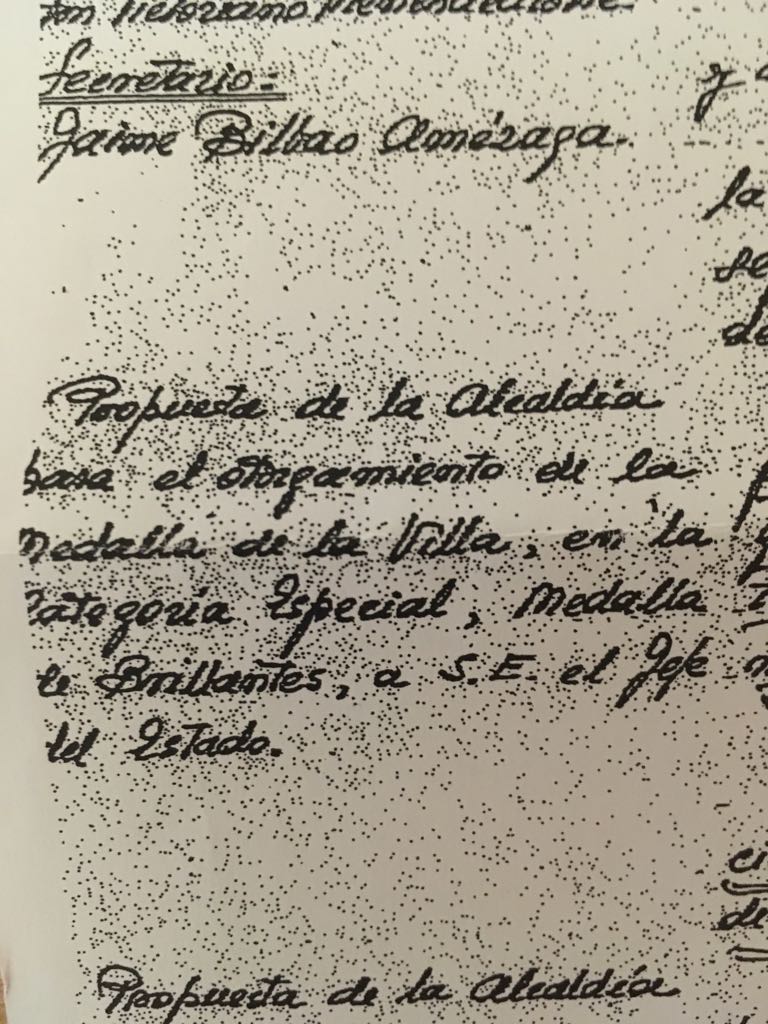 Secretario=
Jaime Bilbao Amézaga.
Propuesta de la Alcaldía
para el otorgamiento de la
Medalla de la Villa, en la
Categoría Especial, Medalla
de Brillantes, a S.E. el Jefe
del Estado.
Propuesta de la Alcaldía
y
la
se
de
ci
de